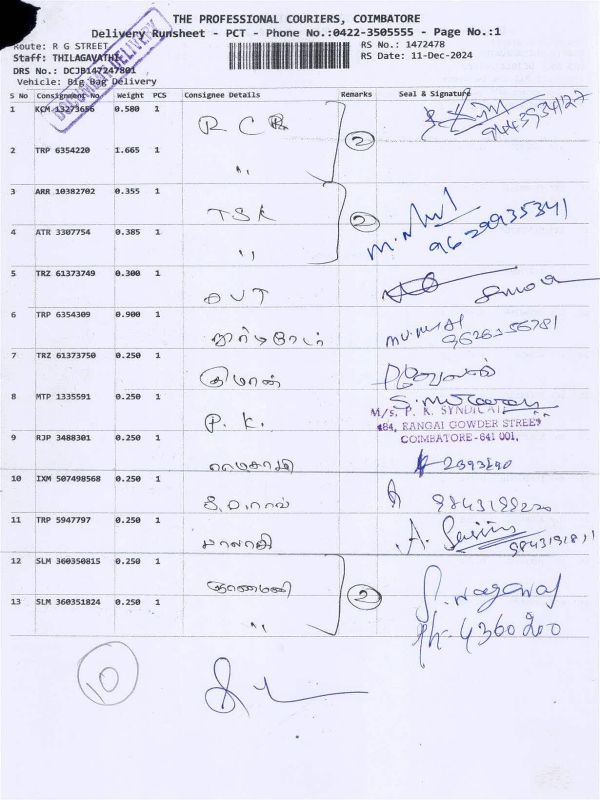 THE PROFESSIONAL COURIERS, COIMBATORE
Delivery Runsheet - PCT - Phone No.:0422-3505555 - Page No.:1
Route: R G STREET
RS No.: 1472478
Staff: THILAGAVATHI
RS Date: 11-Dec-2024
DRS No.: DCJB147247801
Vehicle: Big Bag Delivery
DOCUMENT DELIVERY
S No Consignment No Weight PCS Consignee Details Remarks Seal & Signature
1 KCM 13273656 0.580 1 R C R 9443934127
2 TRP 6354220 1.665 1 "
2
3 ARR 10382702 0.355 1 TSK
4 ATR 3307754 0.385 1 "
2
9629935341
5 TRZ 61373749 0.300 1 OUT
6 TRP 6354309 0.900 1
7 TRZ 61373750 0.250 1
8 MTP 1335591 0.250 1 P. K.
M/s. P. K. SYNDICATE
484, RANGAI GOWDER STREET
COIMBATORE-641 001.
9 RJP 3488301 0.250 1 2393890
10 IXM 507498568 0.250 1
11 TRP 5947797 0.250 1 பாலாஜி
12 SLM 360350815 0.250 1 ஞானமணி
13 SLM 360351824 0.250 1 "
2
Ph. 4360200
10